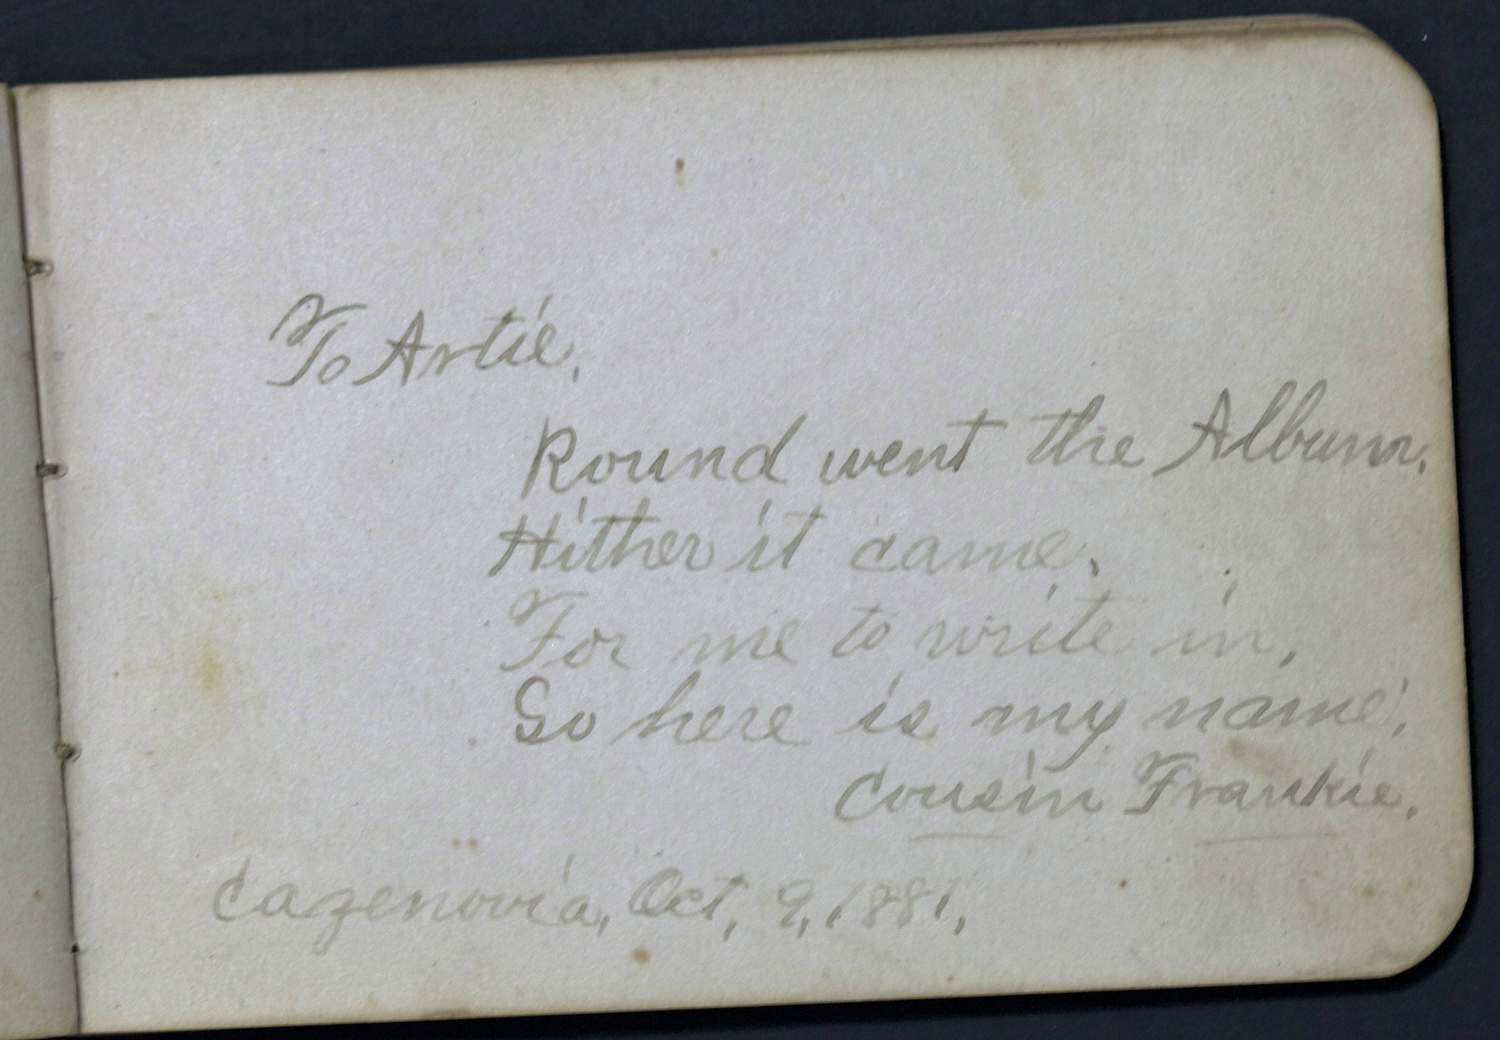 To Artie,
Round went the Album,
Hither it came,
For me to write in,
So here is my name,
Cousin Frankie.
Cazenovia, Oct, 9, 1881,